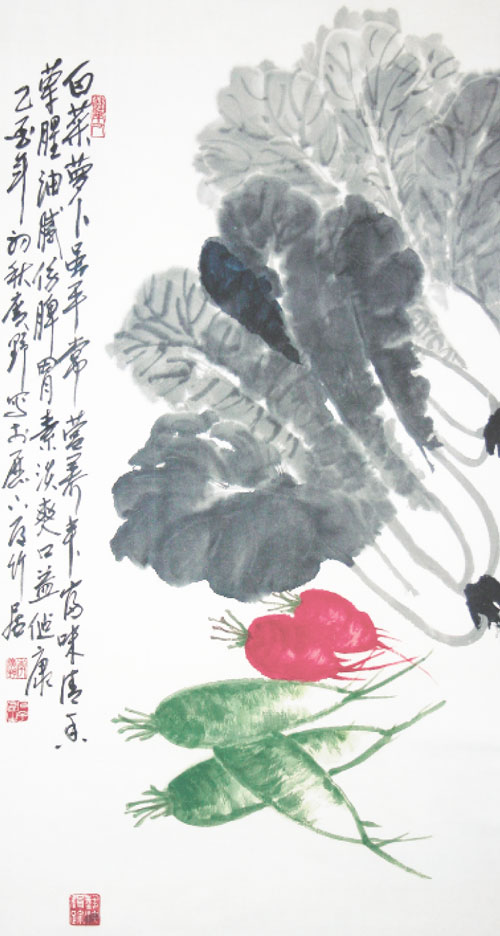 白菜萝卜虽平常营养丰富味清香
荤腥油腻伤脾胃素淡爽口益健康
乙酉年初秋 野写于 竹居